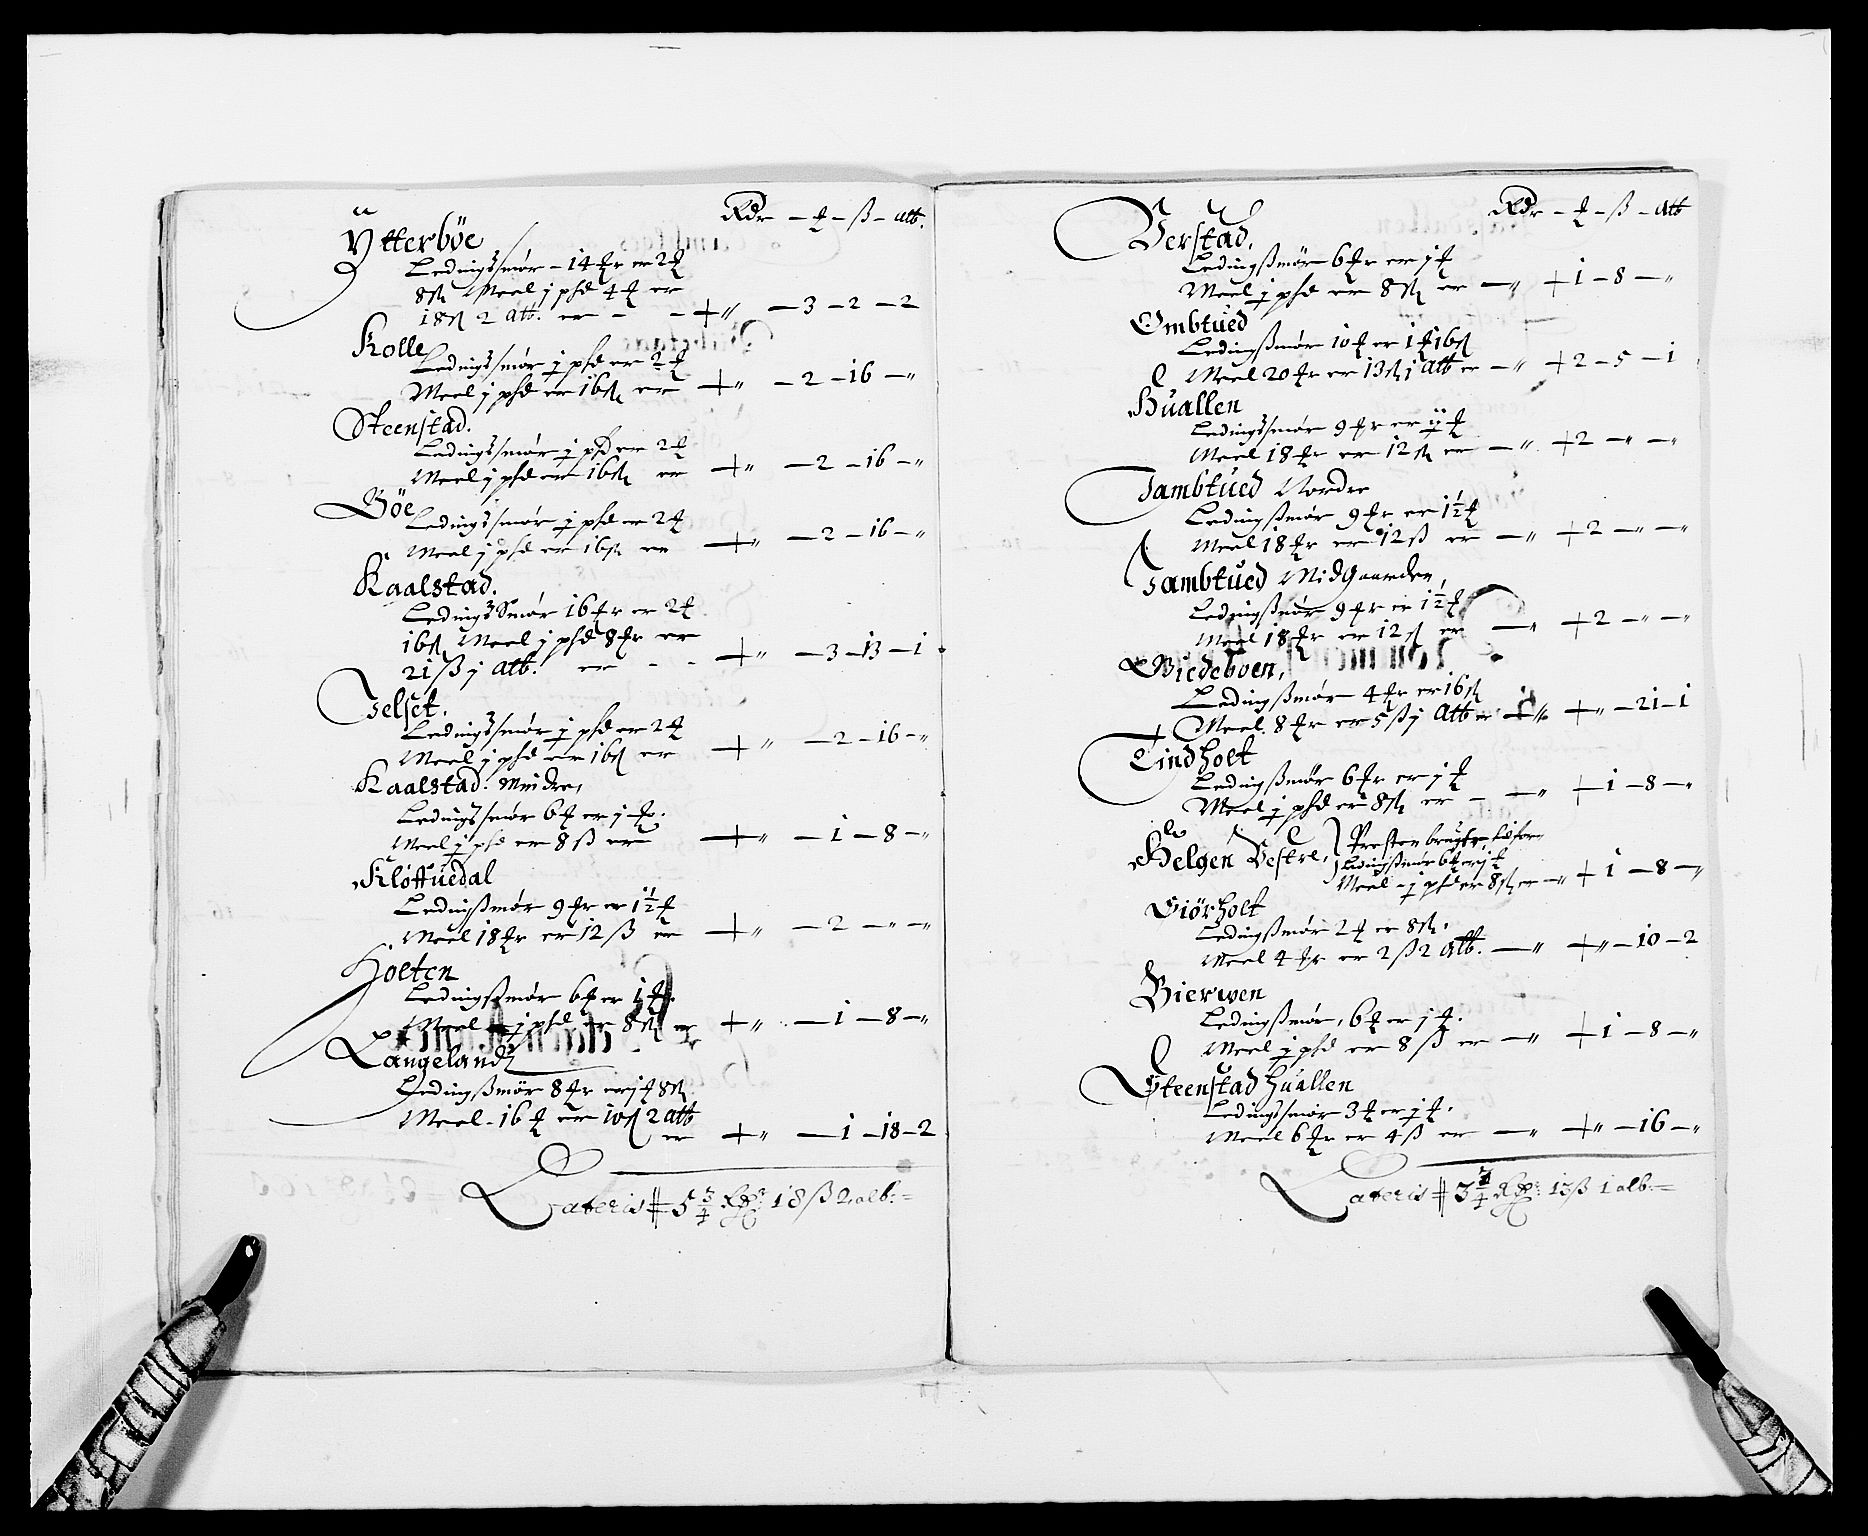 Rdr – ₰ – ß – alb.
Ytterböe
Ledingssmør – 14 ₰r er 2 ₰
8 ß Meel j pfd 4 ₰ er
18 ß 2 alb. er – – " – 3 – 2 – 2
Kolle
Ledingssmør j pfd er 2 ₰
Meel j pfd er 16 ß er " – 2 – 16 – "
Steenstad.
Ledingssmør j pfd er 2 ₰
Meel j pfd er 16 ß er " – 2 – 16 – "
Böe
Ledingssmør j pfd er 2 ₰
Meel j pfd er 16 ß er " – 2 – 16 – "
Kaalstad.
Ledings Smør 16 ₰r er 2 ₰
16 ß Meel j pfd 8 ₰r er
21 ß j alb. er – – " – 3 – 13 – 1
Jelset.
Ledingssmør j pfd er 2 ₰
Meel j pfd er 16 ß er " – 2 – 16 – "
Kaalstad. Mindre,
Ledingssmør 6 ₰ er j ₰.
Meel j pfd er 8 ß er " – 1 – 8 – "
Kløffuedal
Ledingßmør 9 ₰r er 1½ ₰
Meel 18 ₰r er 12 ß er " – 2 – " – "
Holten
Ledingßmør 6 ₰ er 1 ₰.
Meel j pfd er 8 ß er " – 1 – 8 – "
Langeland
Ledingßmør 8 ₰r er j ₰ 8 ß
Meel – 16 ₰ er 10 ß 2 alb
er " – 1 – 18 – 2
Lateris # 5 3/4 Rdr 18 ß 2 alb:=
Rdr – ₰ – ß – alb
Verstad.
Ledingßmør 6 ₰r er j ₰
Meel j pfd er 8 ß er – " 1 – 8 – "
Ombtued
Ledingßmør 10 ₰ er 1 ₰ 16 ß
Meel 20 ₰r er 13 ß j alb er – " 2 – 5 – 1
Huallen
Ledingssmør 9 ₰r er ₰
Meel 18 ₰r er 12 ß er – " 2 – " – "
Tambtued Nordre
Ledingßmør 9 ₰r er 1½ ₰
Meel 18 ₰r er 12 ß er – " 2 – " – "
Tambtued Midgaarden,
Ledingßmør 9 ₰r er 1½ ₰
Meel 18 ₰r er 12 ß er – " 2 – " – "
Wiedeboen,
Ledingßmør 4 ₰r er 16 ß
Meel 8 ₰r er 5 ß j alb er – " " – 21 – 1
Lindholt
Ledingßmør 6 ₰r er j ₰
Meel j pfd er 8 ß er – – " 1 – 8 – "
Helgen Vestre, Presten bruger, hafer
Ledingßmør 6 ₰ er j ₰
Meel – j pfd er 8 ß er – " 1 – 8 – "
Giörholt
Ledingßmør 2 ₰ er 8 ß.
Meel 4 ₰r er 2 ß 2 alb. – " " – 10 – 2
Bierwen
Ledingßmør, 6 ₰ er j ₰.
Meel j pfd er 8 ß er – " 1 – 8 – "
Steenstad huallen
Ledingssmør 3 ₰ er j ₰.
Meel 6 ₰r er 4 ß er – " " – 16 – "
Lateris # 3 3/4 Rdr 13 ß 1 alb:=